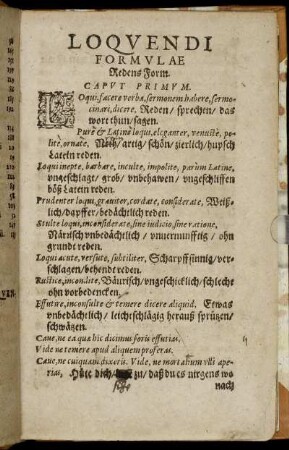 LOQVENDI
FORMVLAE
Redens Form.
CAPVT PRIMVM.
LOqui, facere verba, sermonem habere, sermo-
cinari, dicere. Reden/ sprechen/ das
wort thun/ sagen.
Purè & Latinè loqui, eleganter, venustè, po-
litè, ornatè. artig/ schön/ zierlich/ hupsch
Latein reden.
Loqui inepte, barbare, inculte, impolite, parùm Latine,
vngeschlagt/ grob/ vnbehawen/ vngeschliffen
böß Latein reden.
Prudenter loqui, grauiter, cordate, considerate, Weiß-
lich/ dapffer/ bedächtlich reden.
Stulte loqui, inconsiderate, sine iudicio, sine ratione,
Närrisch vnbedächtlich/ vnuernunfftig/ ohn
grundt reden.
Loqui acute, versute, subtiliter, Scharpffsinnig/ ver-
schlagen/ behende reden.
Rustice, incondite, Bäurisch/ vngeschicklich/ schlecht
ohn vorbedencken.
Effutire, inconsulte & temere dicere aliquid, Etwas
vnbedächtlich/ leichtschlägig herauß sprützen/
schwätzen.
Caue, ne ea quæ hic dicimus foris effutias.
Vide ne temere apud aliquem proferas.
Caue, ne cuiquam dixeris. Vide, ne mortalium vlli ape-
rias, Hüte dich/ zu/ daß du es nirgens wo
nach